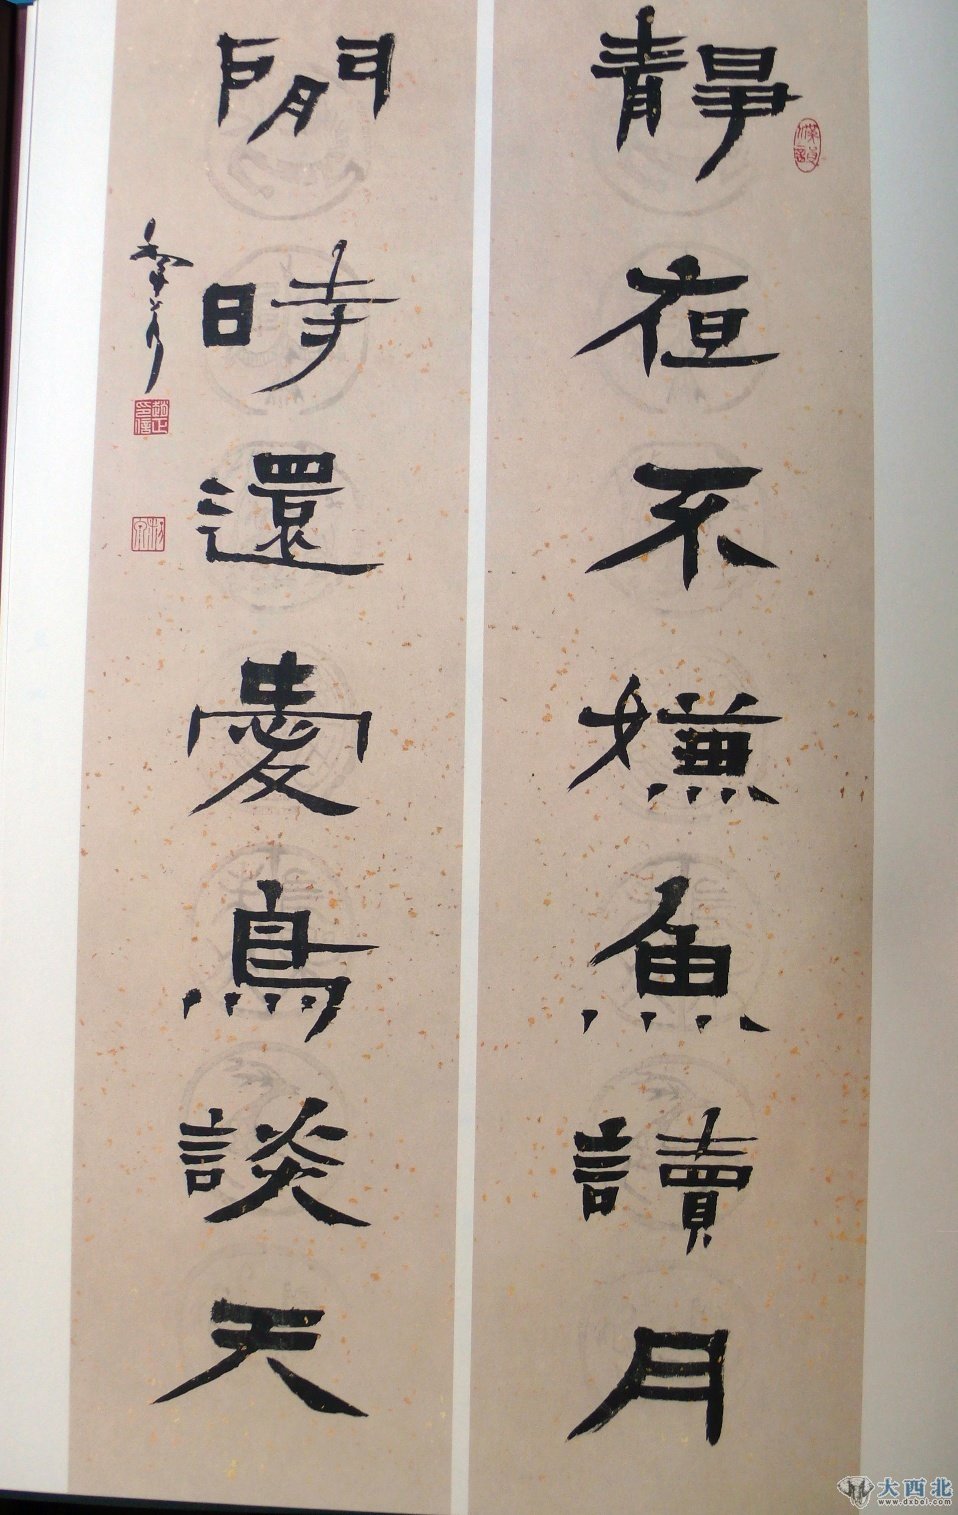 靜夜不嫌魚讀月
閒時還愛鳥談天
大西北
www.dxbei.com